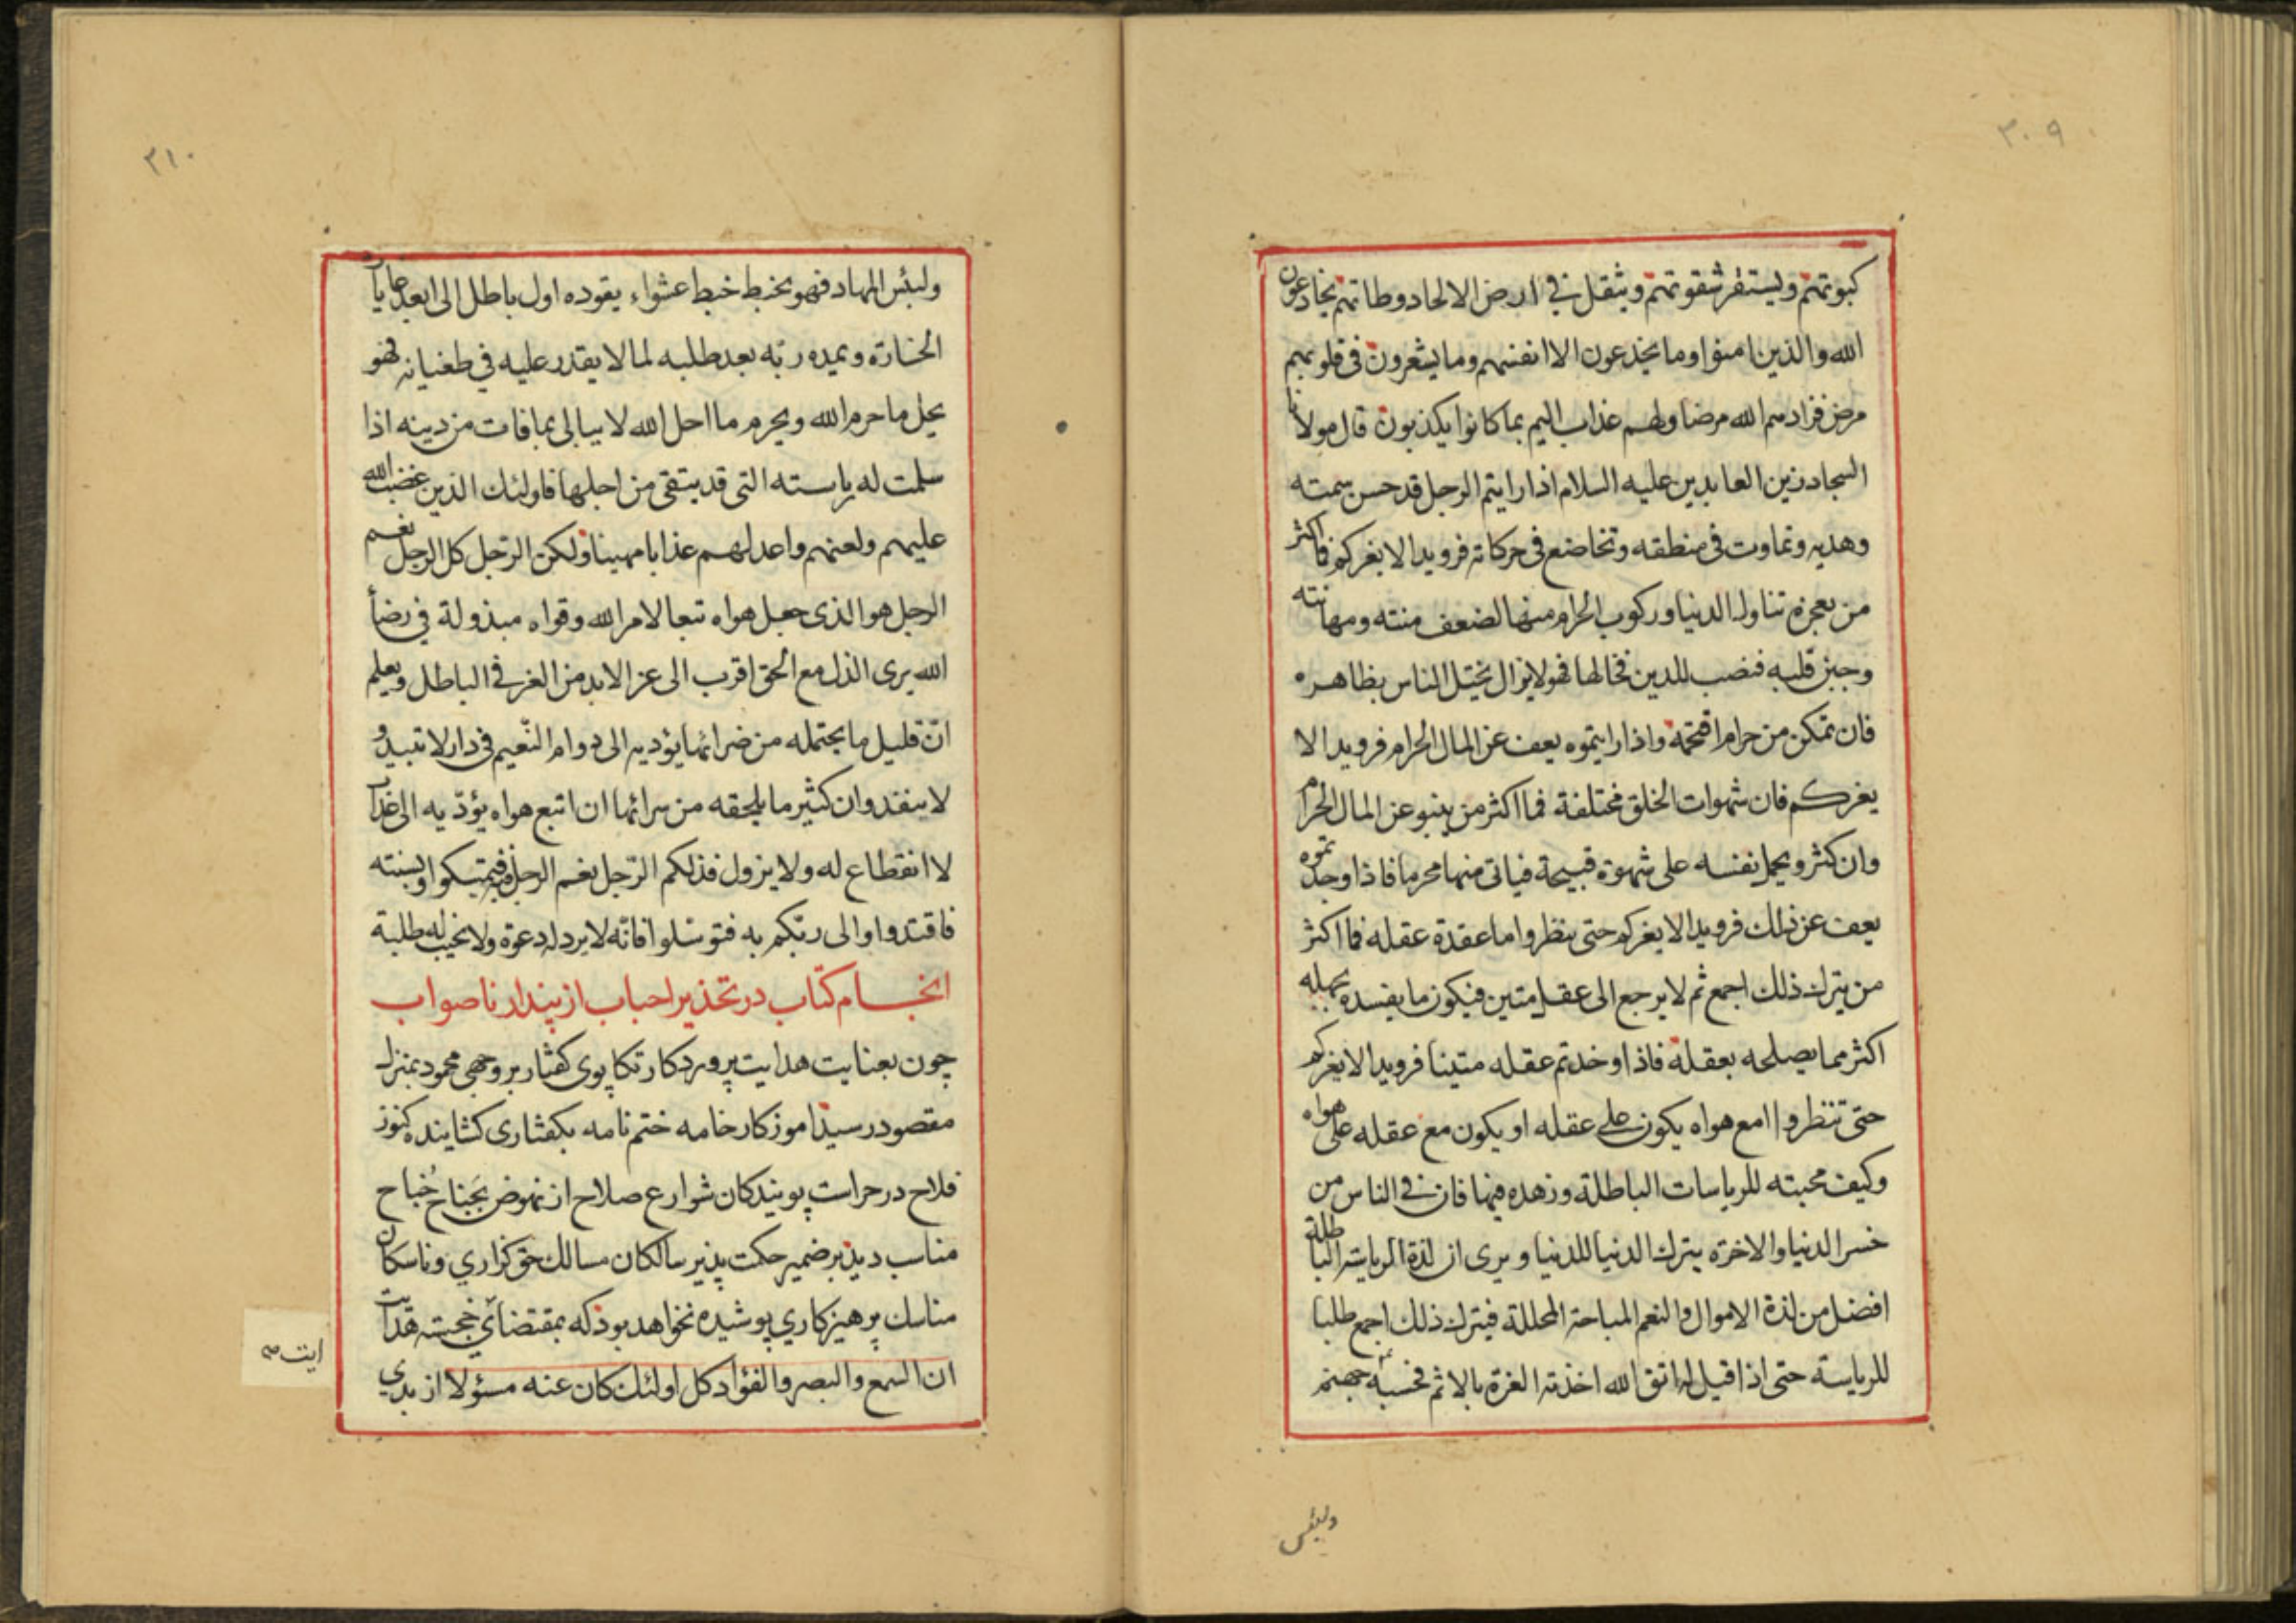 ٣٠٩
كبوتهم ويستفز شقوتهم ويثقل في ارض الالحاد وطاتهم يخادعون
الله والذين امنوا وما يخدعون الا انفسهم وما يشعرون فى قلوبهم
مرض فزادهم الله مرضا ولهم عذاب اليم بما كانوا يكذبون قال مولانا
السجاد زين العابدين عليه السلام اذا رايتم الرجل قد حسن سمته
وهديه وتماوت فى منطقه وتخاضع فى حركاته فرويدا لا يغركم فما اكثر
من يعجزه تناول الدنيا وركوب الحرام منها لضعف منته ومهانته
وجبن قلبه فنصب للدين فخالها فهو لا يزال يختل الناس بظاهره
فان تمكن من حرام اقتحمه واذا رايتموه يعف عن المال الحرام فرويدا لا
يغركم فان شهوات الخلق مختلفة فما اكثر من ينبو عن المال الحرام
وان كثر ويحمل نفسه على شهوة قبيحة فياتى منها محرما فاذا وجدتموه
يعف عن ذلك فرويدا لا يغركم حتى تنظروا ما عقدة عقله فما اكثر
من يترك ذلك اجمع ثم لا يرجع الى عقل متين فيكون ما يفسده بجهله
اكثر مما يصلحه بعقله فاذا وجدتم عقله متينا فرويدا لا يغركم
حتى تنظروا امع هواه يكون على عقله او يكون مع عقله على هواه
وكيف محبته للرياسات الباطلة وزهده فيها فان فى الناس من
خسر الدنيا والاخرة يترك الدنيا للدنيا ويرى ان لذة الرياسة الباطلة
افضل من لذة الاموال والنعم المباحة المحللة فيترك ذلك اجمع طلبا
للرياسة حتى اذا قيل له اتق الله اخذته العزة بالاثم فحسبه جهنم
ولبئس
٣١٠
ولبئس المهاد فهو يخبط خبط عشواء يقوده اول باطل الى ابعد غايات
الخسارة ويمده ربه بعد طلبه لما لا يقدر عليه في طغيانه فهو
يحل ما حرم الله ويحرم ما احل الله لا يبالى بما فات من دينه اذا
سلمت له رياسته التى قد يتقى من اجلها فاولئك الذين غضب الله
عليهم ولعنهم واعد لهم عذابا مهينا ولكن الرّجل كل الرجل نعم
الرجل هو الذى جعل هواه تبعا لامر الله وقواه مبذولة في رضأ
الله يرى الذل مع الحق اقرب الى عز الابد من العز فى الباطل ويعلم
انّ قليل ما يحتمله من ضرائها يؤديه الى دوام النّعيم فى دار لا تبيد و
لا ينفد وان كثير ما يلحقه من سرائها ان اتبع هواه يؤدّيه الى عذاب
لا انقطاع له ولا يزول فذلكم الرّجل نعم الرجل فبه فتمسكوا وبسنته
فاقتدوا والى ربّكم به فتوسّلوا فانّه لا يرد له دعوة ولا يخيب له طلبة
انجام كتاب در تحذير احباب از پندار ناصواب
چون بعنايت هدايت پروردكار تكاپوى كفتار بر وجهى محمود بمنزل
مقصود رسيد اموزكار خامه ختم نامه بكفتارى كشاينده كنوز
فلاح در حراست پويندكان شوارع صلاح از نهوض بجَناح جُناح
مناسب ديد بر ضمير حكمت پذير سالكان مسالك حق كزاري وناسكان
مناسك پرهيزكاري پوشيده نخواهد بود كه بمقتضاى خجسته هدايت
ان السمع والبصر والفؤاد كل اولئك كان عنه مسؤلا از بدي